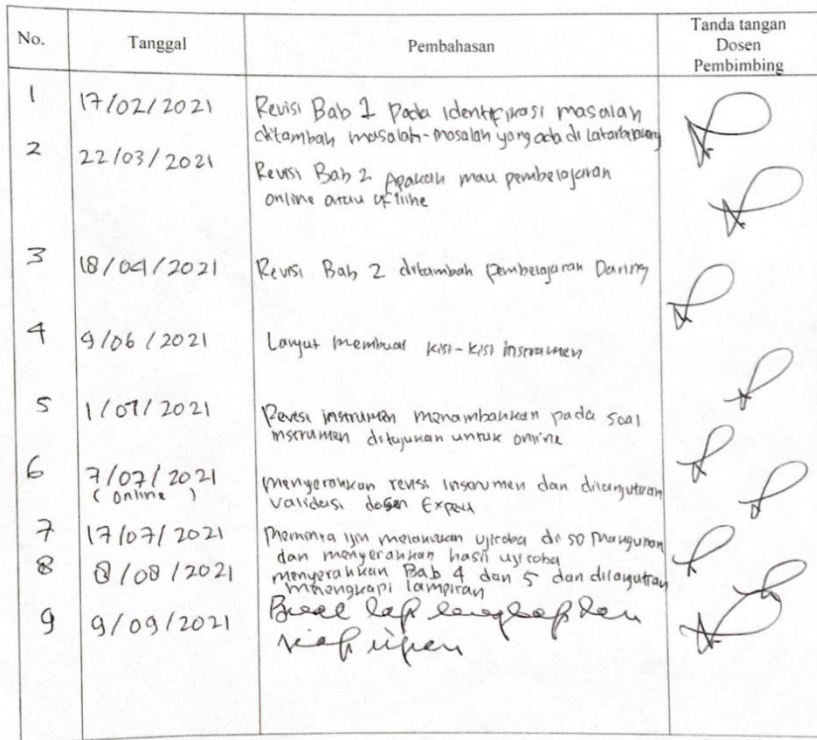 No. Tanggal Pembahasan Tanda tangan
Dosen
Pembimbing
1 17/02/2021 Revisi Bab 1 Pada identifikasi masalah
ditambah masalah-masalah yang ada di latarbelakang
2 22/03/2021 Revisi Bab 2 Apakah mau pembelajaran
online atau offline
3 18/04/2021 Revisi Bab 2 ditambah pembelajaran Daring
4 9/06/2021 Lanjut membuat kisi-kisi instrumen
5 1/07/2021 Revisi instrumen menambahkan pada soal
instrumen ditujukan untuk online
6 7/07/2021 menyerahkan revisi instrumen dan dilanjutkan
(online) validasi dosen Expert
7 17/07/2021 meminta ijin melakukan ujicoba di SD Mangunan
dan menyerahkan hasil ujicoba
8 8/08/2021 menyerahkan Bab 4 dan 5 dan dilanjutkan
melengkapi lampiran
9 9/09/2021 lengkap dan
siap ujian